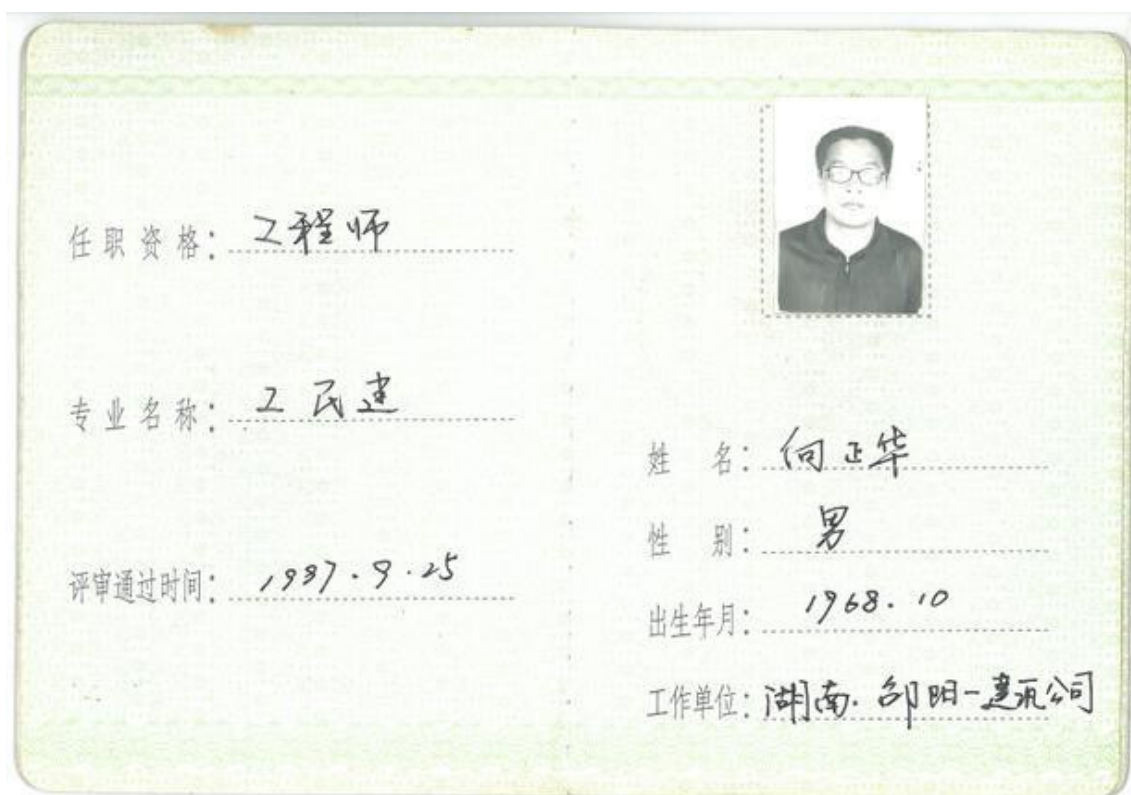 任职资格：工程师
专业名称：工民建
评审通过时间：1997.9.25
姓 名：向正华
性 别：男
出生年月：1968.10
工作单位：湖南.邵阳一建筑公司